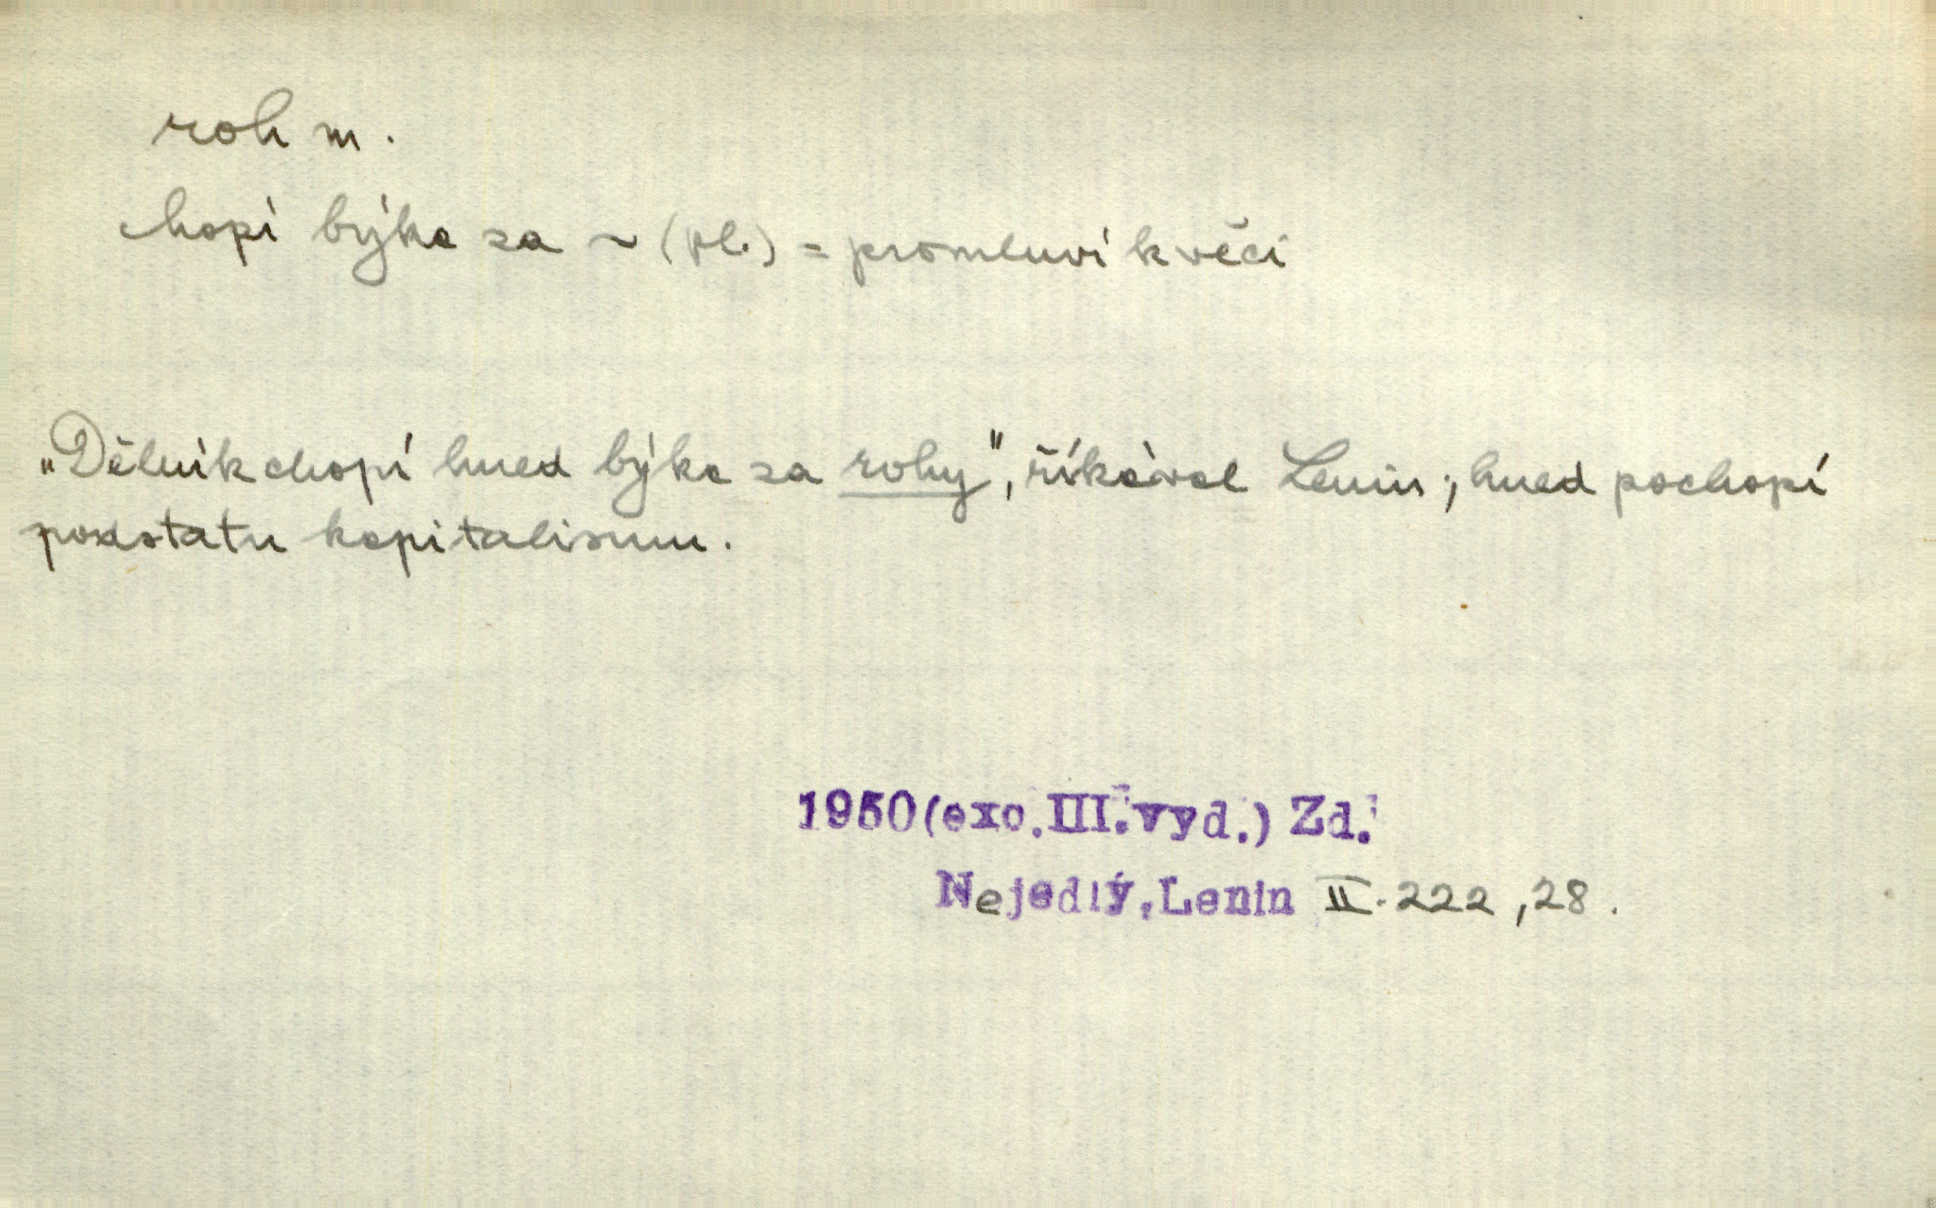 roh m.
chopí býka za ~ (pl.) = promluví k věci
„Dělník chopí hned býka za rohy", říkával Lenin; hned pochopí
podstatu kapitalismu.
1950(exc.III.vyd.) Zd.
Nejedlý, Lenin II. 222, 28.